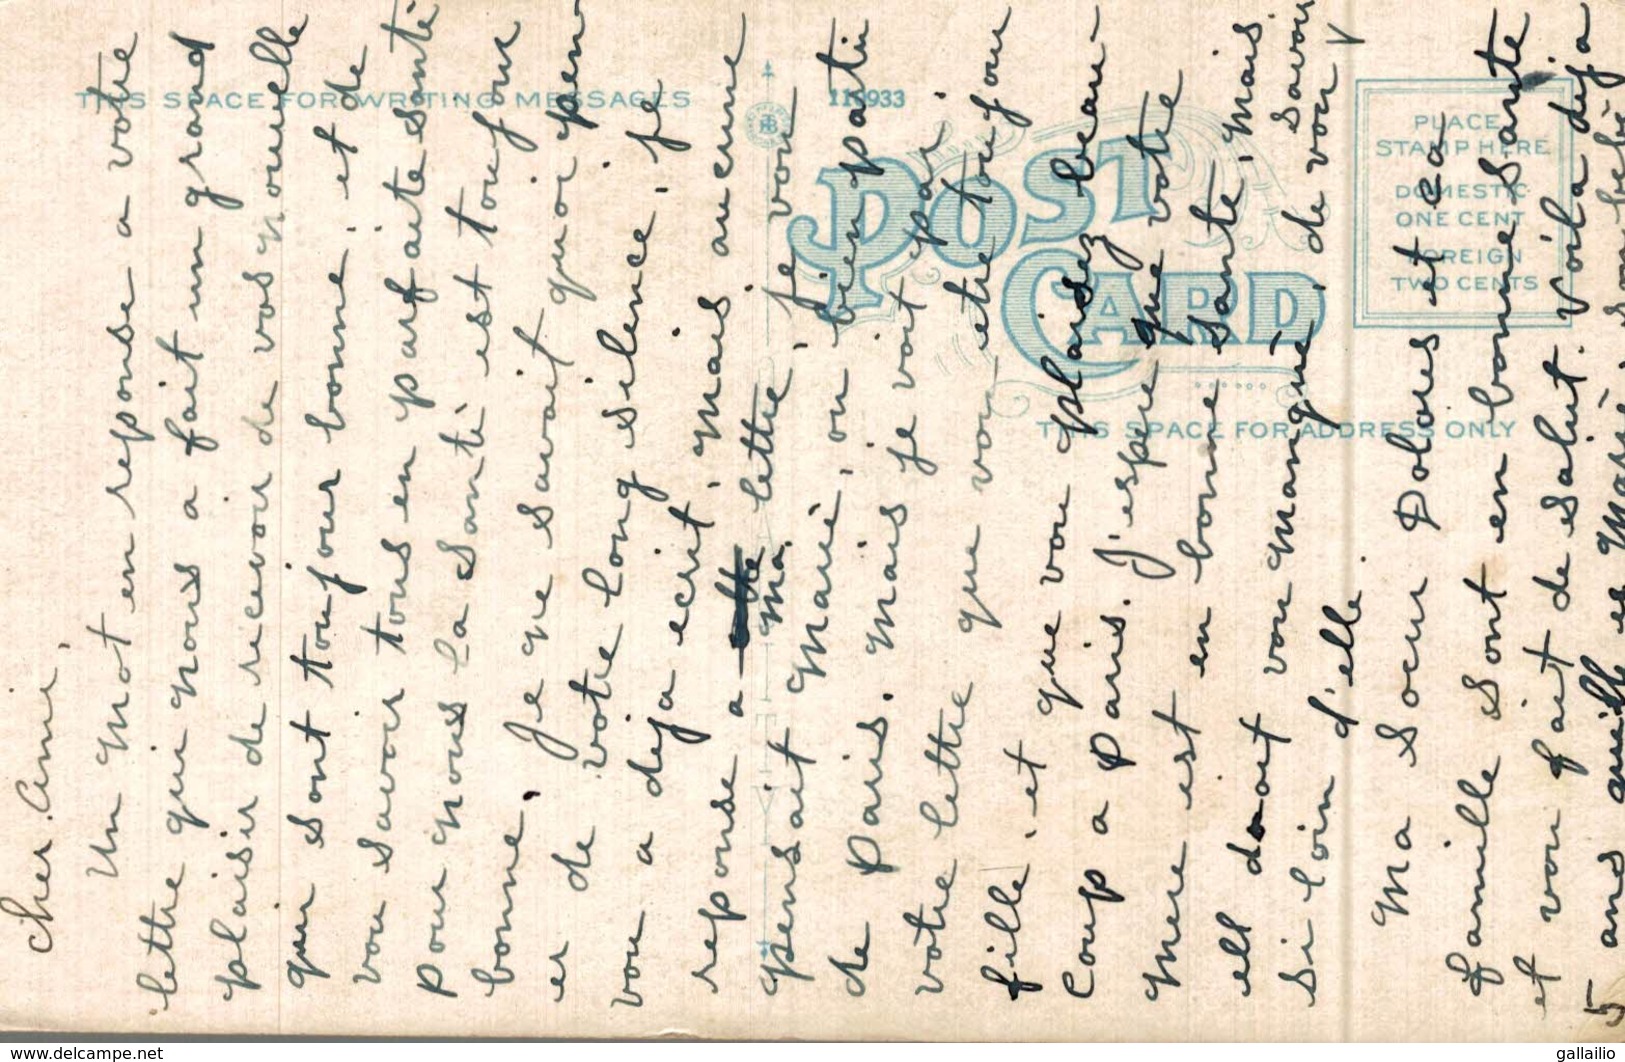 Cher Ami,
Un mot en reponse a votre
lettre qui nous a fait un grand
plaisir de recevoir de vos nouvelle
qui sont toujour bonne, et de
vou savoir tous en parfaite santé
Pour nous la santè est toujour
bonne. Je ne savait quoi pen
er de votre long silence, je
vou a deja ecrit, mais aucune
reponse a ma lettre, je vou
pensait Marié, ou bien partie
de Paris. Mais je voit par
votre lettre que vou etre toujour
fille, et que vou plaisez beau-
Coup a Paris. J'espere que votre
Mere est en bonne Sante, Mais
ell doit vou Manquè, de vou savoir
si loin d'elle.
Ma Soeur Dolores et ca
famille Sont en bonne Sante
et vou fait de salut. Voila deja
5 ans quelle es Marié, son bebè
THIS SPACE FOR WRITING MESSAGES
113933
POST CARD
THIS SPACE FOR ADDRESS ONLY
PLACE
STAMP HERE
DOMESTIC
ONE CENT
FOREIGN
TWO CENTS
https://www.delcampe.net
gallailio